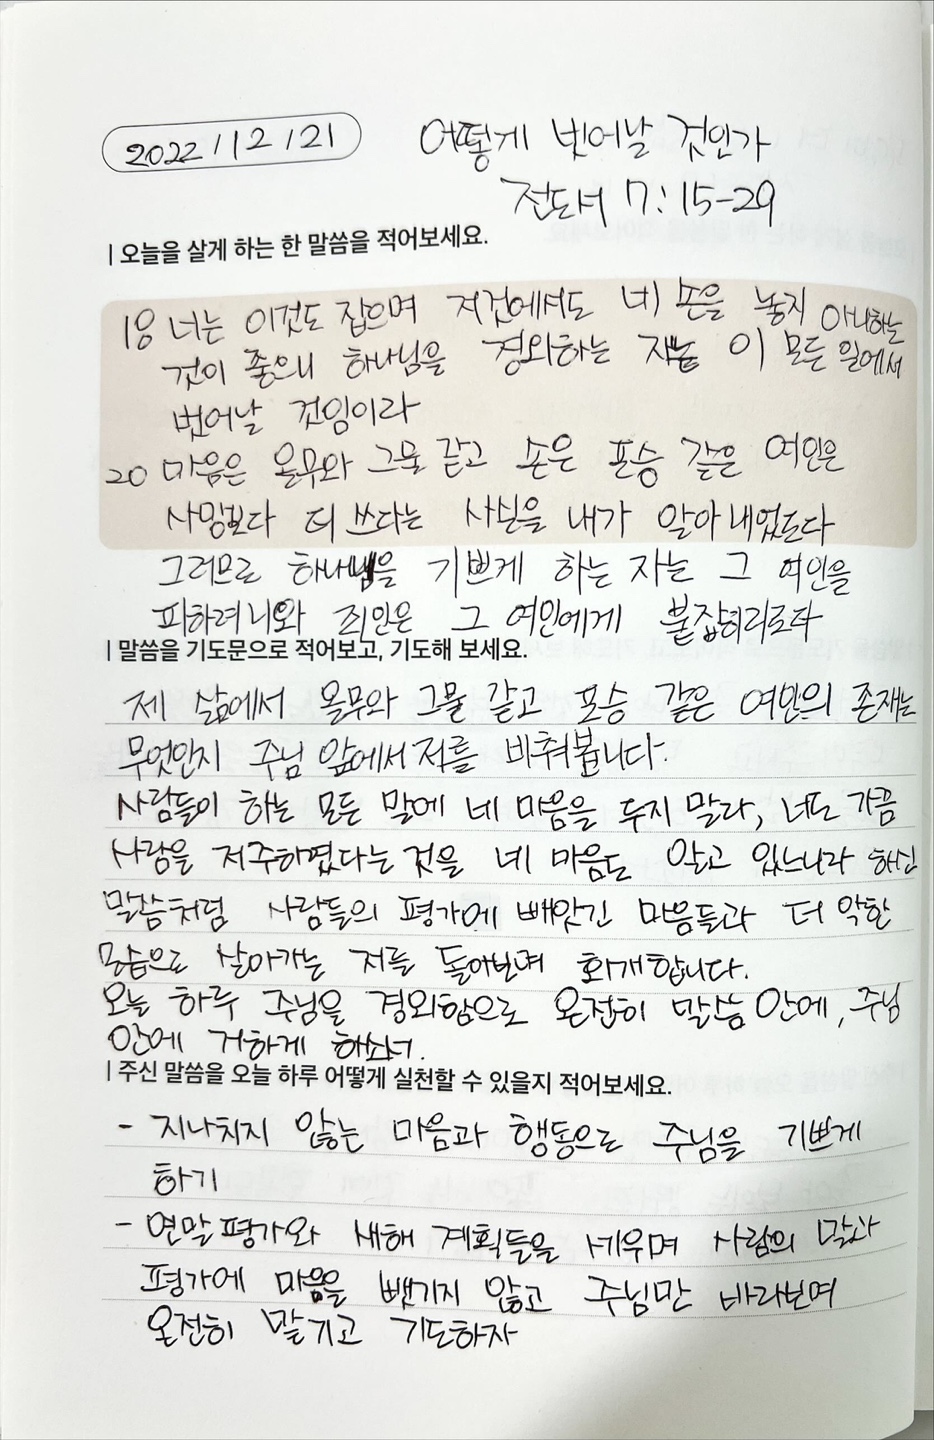 2022/12/21
어떻게 벗어날 것인가
전도서 7:15-29
| 오늘을 살게 하는 한 말씀을 적어보세요.
18 너는 이것도 잡으며 저것에서도 네 손을 놓지 아니하는
것이 좋으니 하나님을 경외하는 자는 이 모든 일에서
벗어날 것임이라
20 마음은 올무와 그물 같고 손은 포승 같은 여인은
사망보다 더 쓰다는 사실을 내가 알아내었도다
그러므로 하나님을 기쁘게 하는 자는 그 여인을
피하려니와 죄인은 그 여인에게 붙잡히리로다
| 말씀을 기도문으로 적어보고, 기도해 보세요.
제 삶에서 올무와 그물 같고 포승 같은 여인의 존재는
무엇인지 주님 앞에서 저를 비춰봅니다.
사람들이 하는 모든 말에 네 마음을 두지 말라, 너도 가끔
사람을 저주하였다는 것을 네 마음도 알고 있느니라 하신
말씀처럼 사람들의 평가에 빼앗긴 마음들과 더 악한
모습으로 살아가는 저를 돌아보며 회개합니다.
오늘 하루 주님을 경외함으로 온전히 말씀 안에, 주님
안에 거하게 하소서.
| 주신 말씀을 오늘 하루 어떻게 실천할 수 있을지 적어보세요.
- 지나치지 않는 마음과 행동으로 주님을 기쁘게
하기
- 연말평가와 새해 계획들을 세우며 사람의 말과
평가에 마음을 뺏기지 않고 주님만 바라보며
온전히 맡기고 기도하자